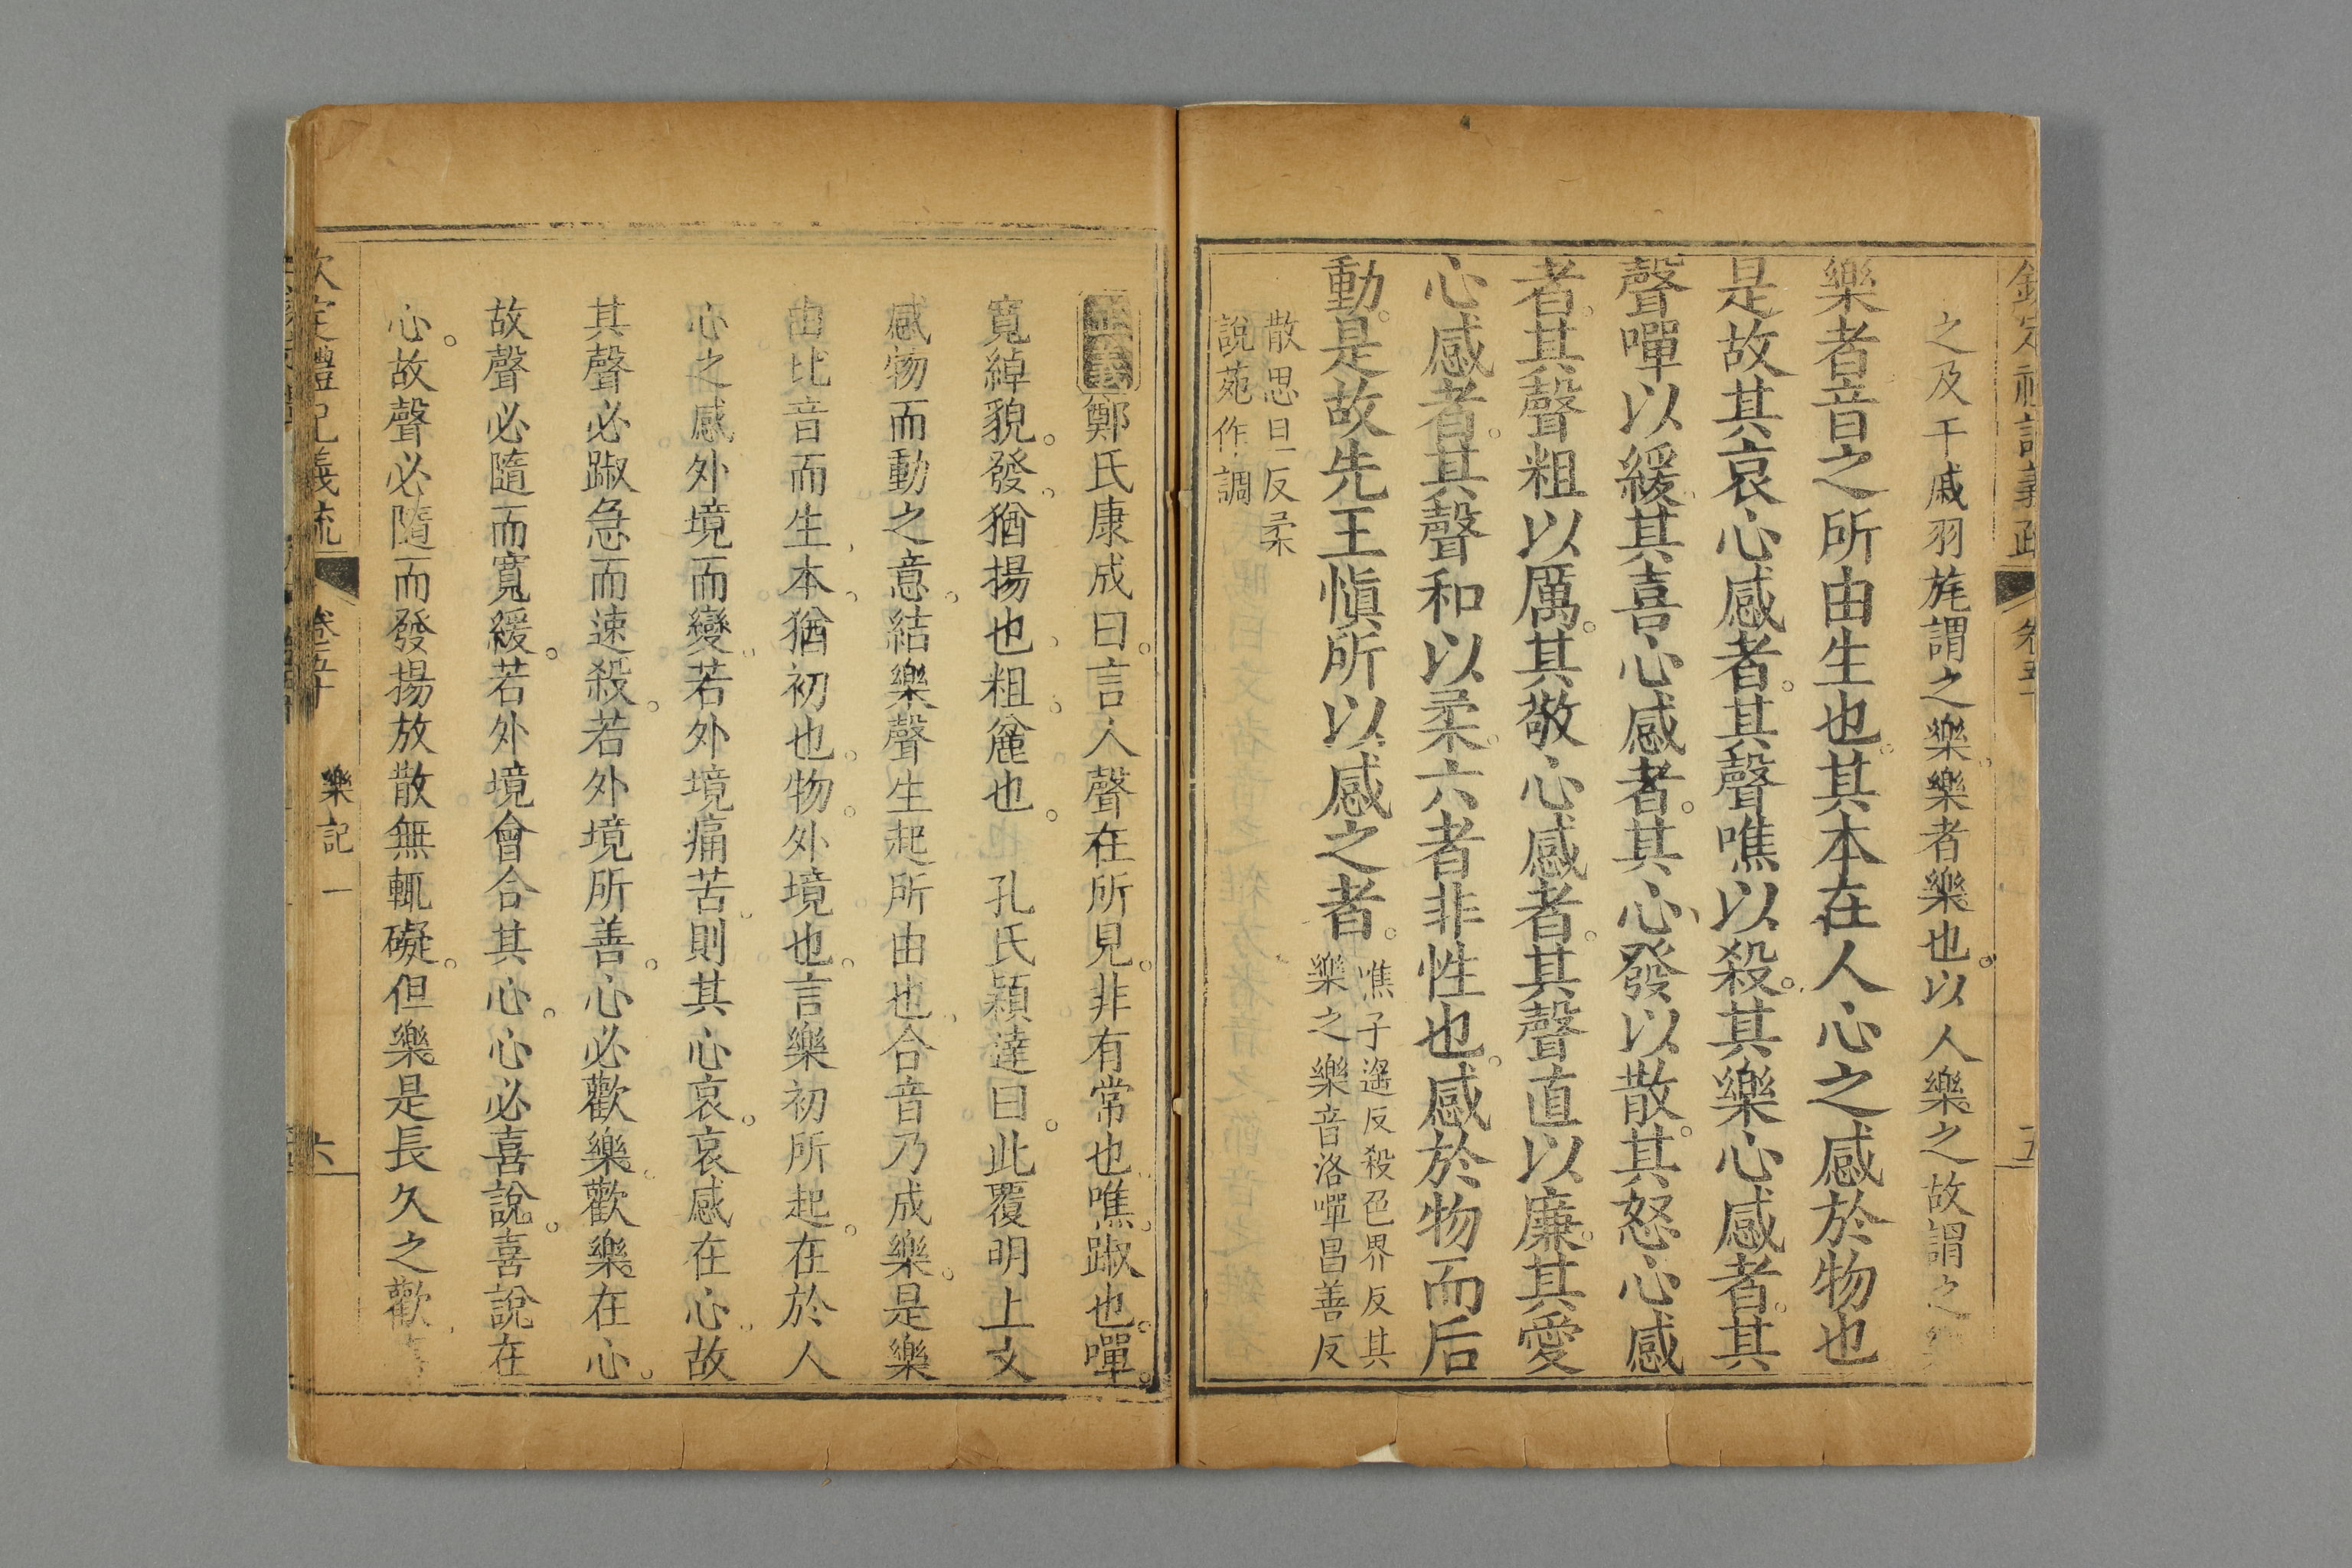 之及干戚羽旄謂之樂。樂者樂也。以人樂之故謂之
樂者音之所由生也。其本在人心之感於物也
是故其哀心感者。其聲噍以殺。其樂心感者。其
聲嘽以緩。其喜心感者。其心發以散。其怒心感
者。其聲粗以厲。其敬心感者。其聲直以廉。其愛
心感者。其聲和以柔。六者非性也。感於物而后
動。是故先王愼所以感之者。
噍子遙反殺色界反其
樂之樂音洛嘽昌善反
散思旦反柔
說苑作調
正義鄭氏康成曰。言人聲在所見。非有常也。噍。踧也。嘽。
寬綽貌。發。猶揚也。粗。麄也。孔氏穎達曰。此覆明上文
感物而動之意。結樂聲生起所由也。合音乃成樂。是樂
由比音而生。本。猶初也。物。外境也。言樂初所起。在於人
心之感外境而變。若外境痛苦。則其心哀。哀感在心。故
其聲必踧急而速殺。若外境所善。心必歡樂。歡樂在心。
故聲必隨而寬緩。若外境會合其心。心必喜說。喜說在
心。故聲必隨而發揚放散無輒礙。但樂是長久之歡
欽定禮記義疏 卷五十 樂記一 六